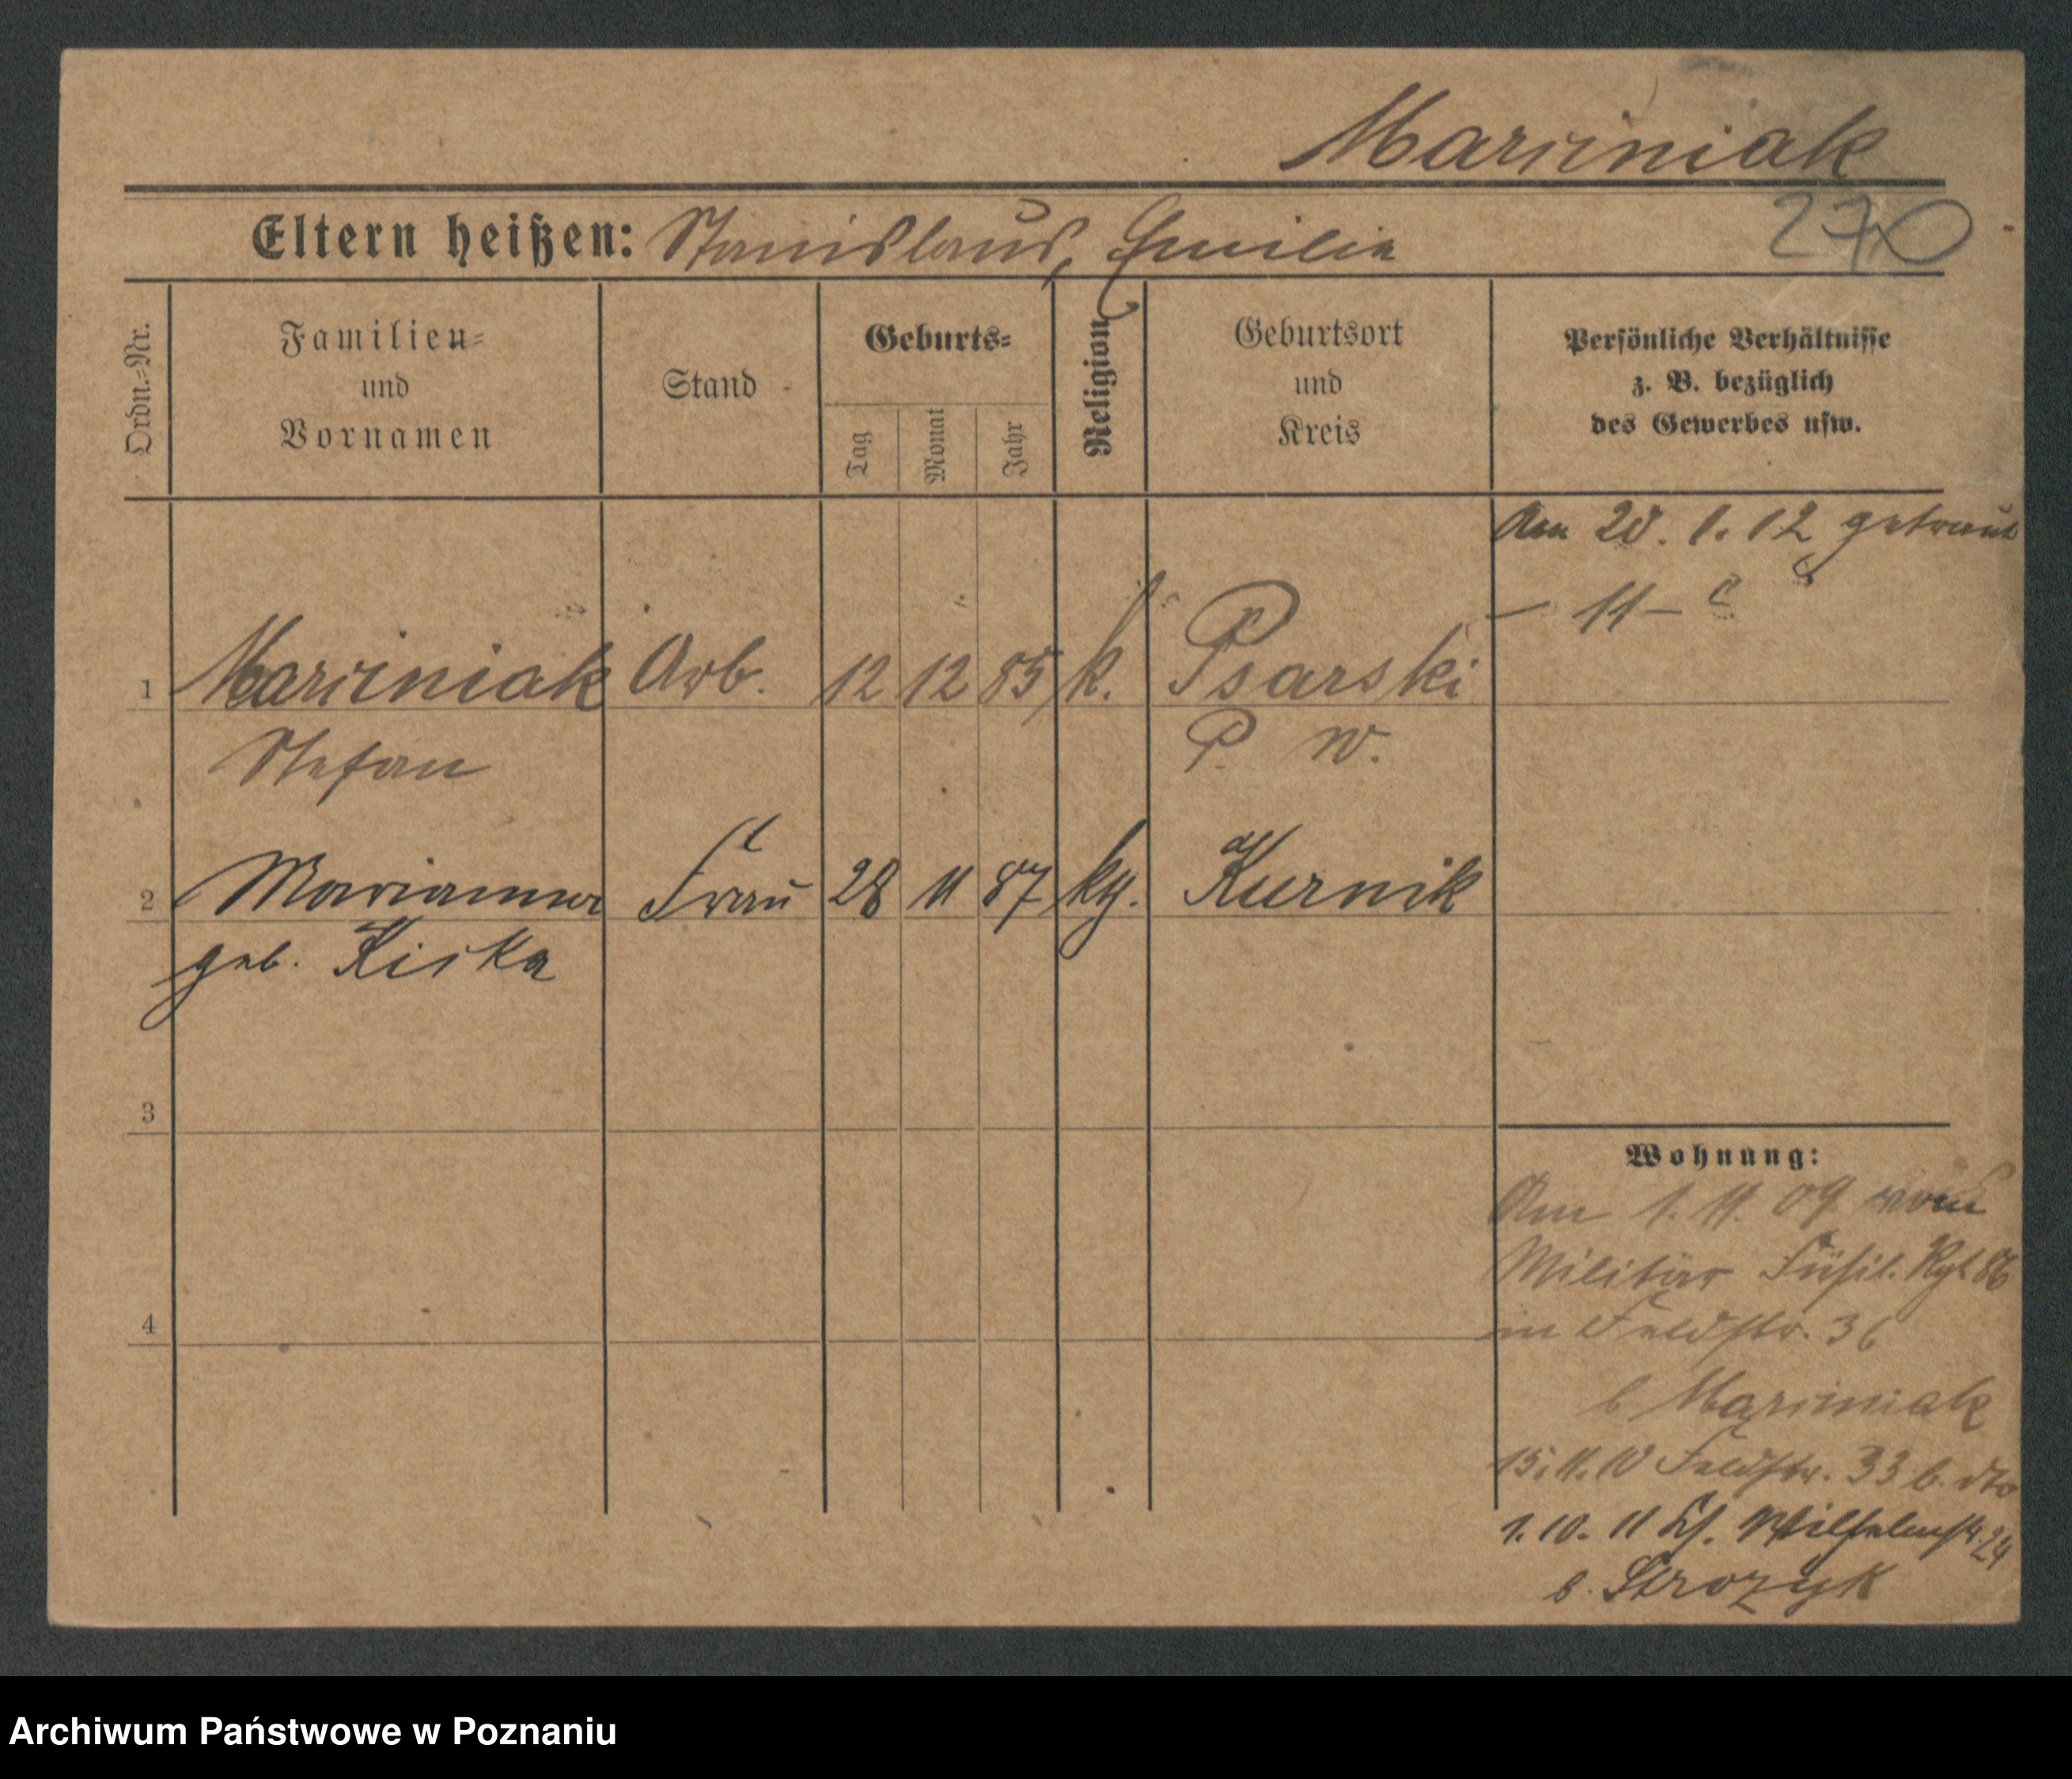 Marciniak
Eltern heißen: Stanislaus, Emilie
270
Ordn.-Nr.
Familien-
und
Vornamen
Stand
Geburts-
Tag
Monat
Jahr
Religion
Geburtsort
und
Kreis
Persönliche Verhältnisse
z. B. bezüglich
des Gewerbes usw.
Am 20. 1. 12 getraut
– 11 –
1 Marciniak Arb. 12 12 85 k. Psarski
Stefan P. W.
2 Marianna Frau 28 11 87 kg. Kurnik
geb. Kiska
3
4
Wohnung:
Am 1. 11. 09 vom
Militär Füsil. Rgt 86
in Feldstr. 36
b Marciniak
15. 11. 10 Feldstr. 33 b. dto
1. 10. 11 Wilhelmstr. 24
b. Strozyk
Archiwum Państwowe w Poznaniu